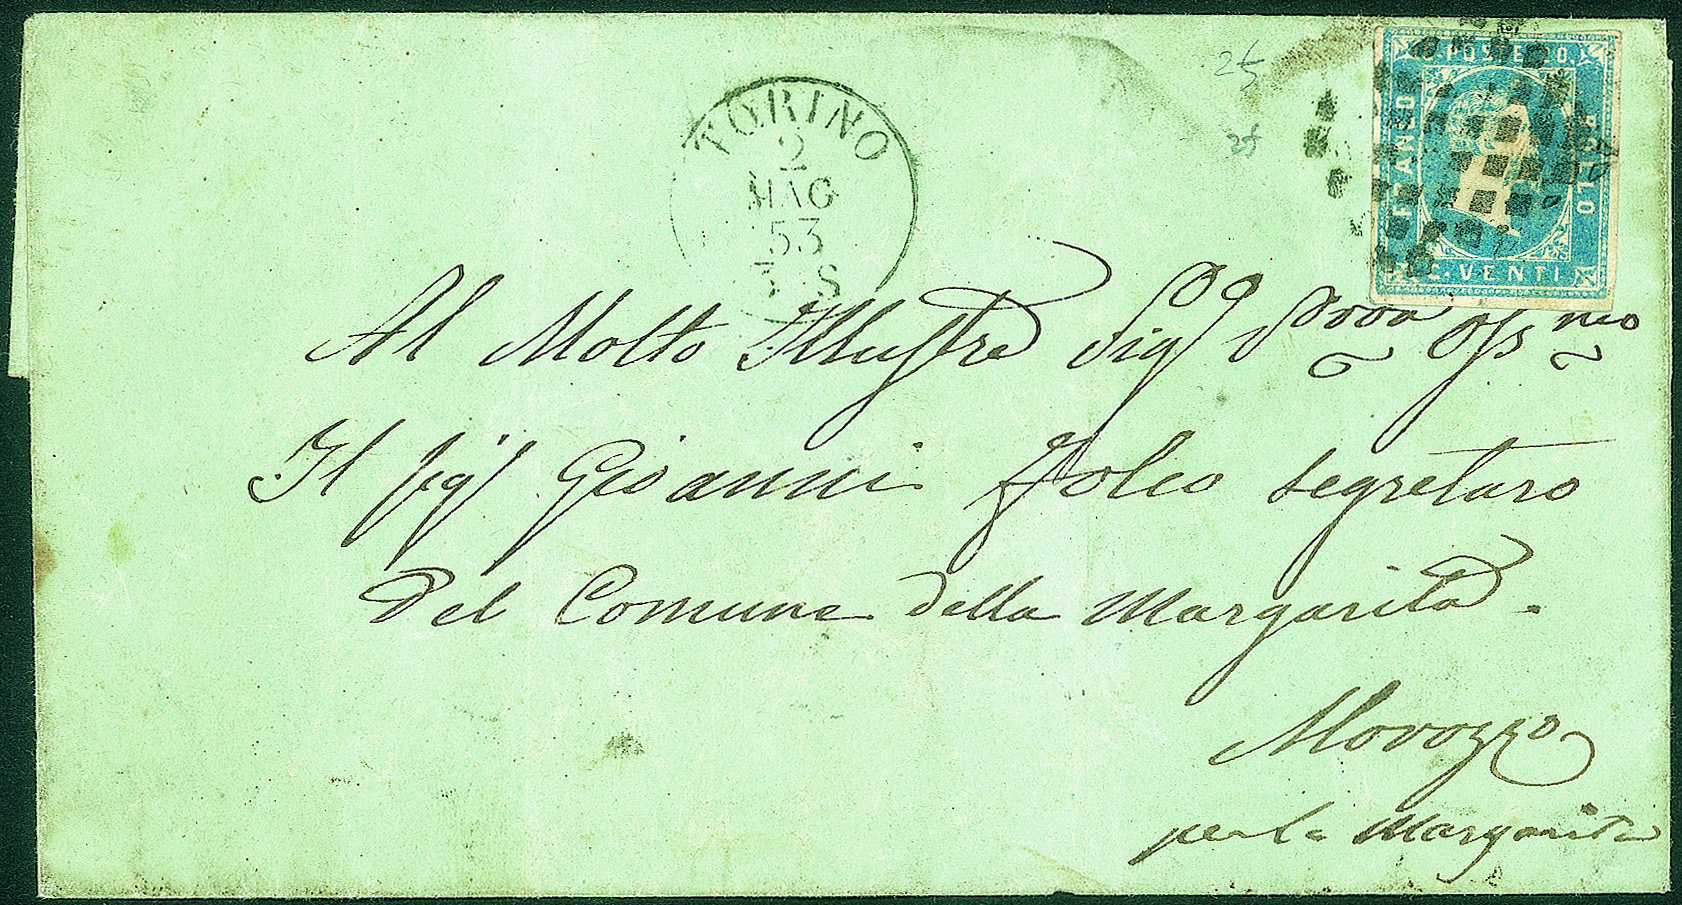 TORINO
2
MAG
53
S
25
25
POSTE O.
FRANCO
BOLLO
C. VENTI
Al Molto Illustre Sig.r Pron Oss.mo
Il sig.r Gioanni Folco segretaro
Del Comune della Margarita.
Morozzo
per la Margarita